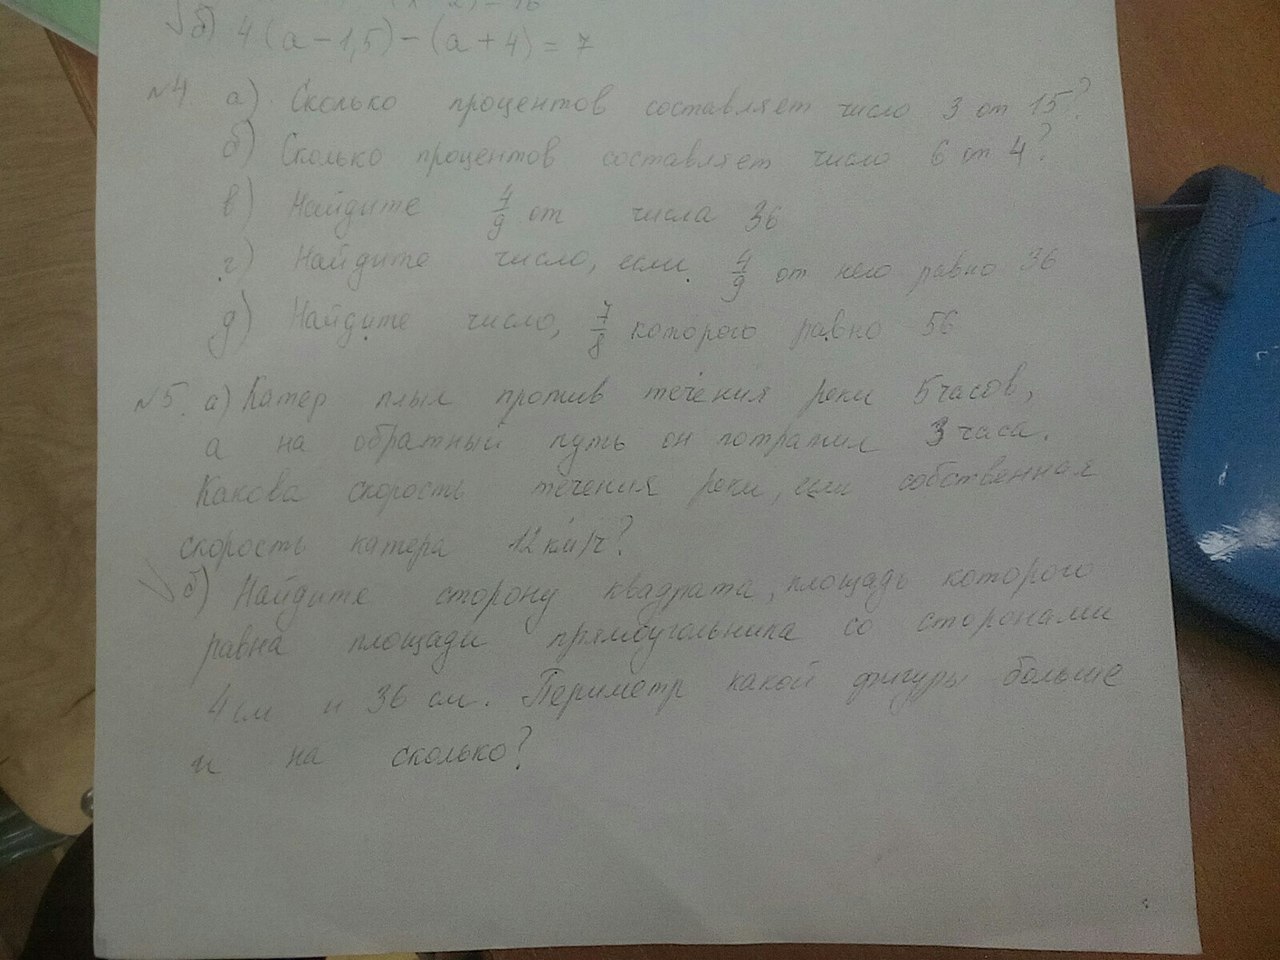 б) 4(a-1,5)-(a+4)=7
№4 а) Сколько процентов составляет число 3 от 15?
б) Сколько процентов составляет число 6 от 4?
в) Найдите 4/9 от числа 36
г) Найдите число, если 4/9 от него равно 36
д) Найдите число, 7/8 которого равно 56
№5. а) Катер плыл против течения реки 5 часов,
а на обратный путь он потратил 3 часа.
Какова скорость течения реки, если собственная
скорость катера 12 км/ч?
б) Найдите сторону квадрата, площадь которого
равна площади прямоугольника со сторонами
4 см и 36 см. Периметр какой фигуры больше
и на сколько?